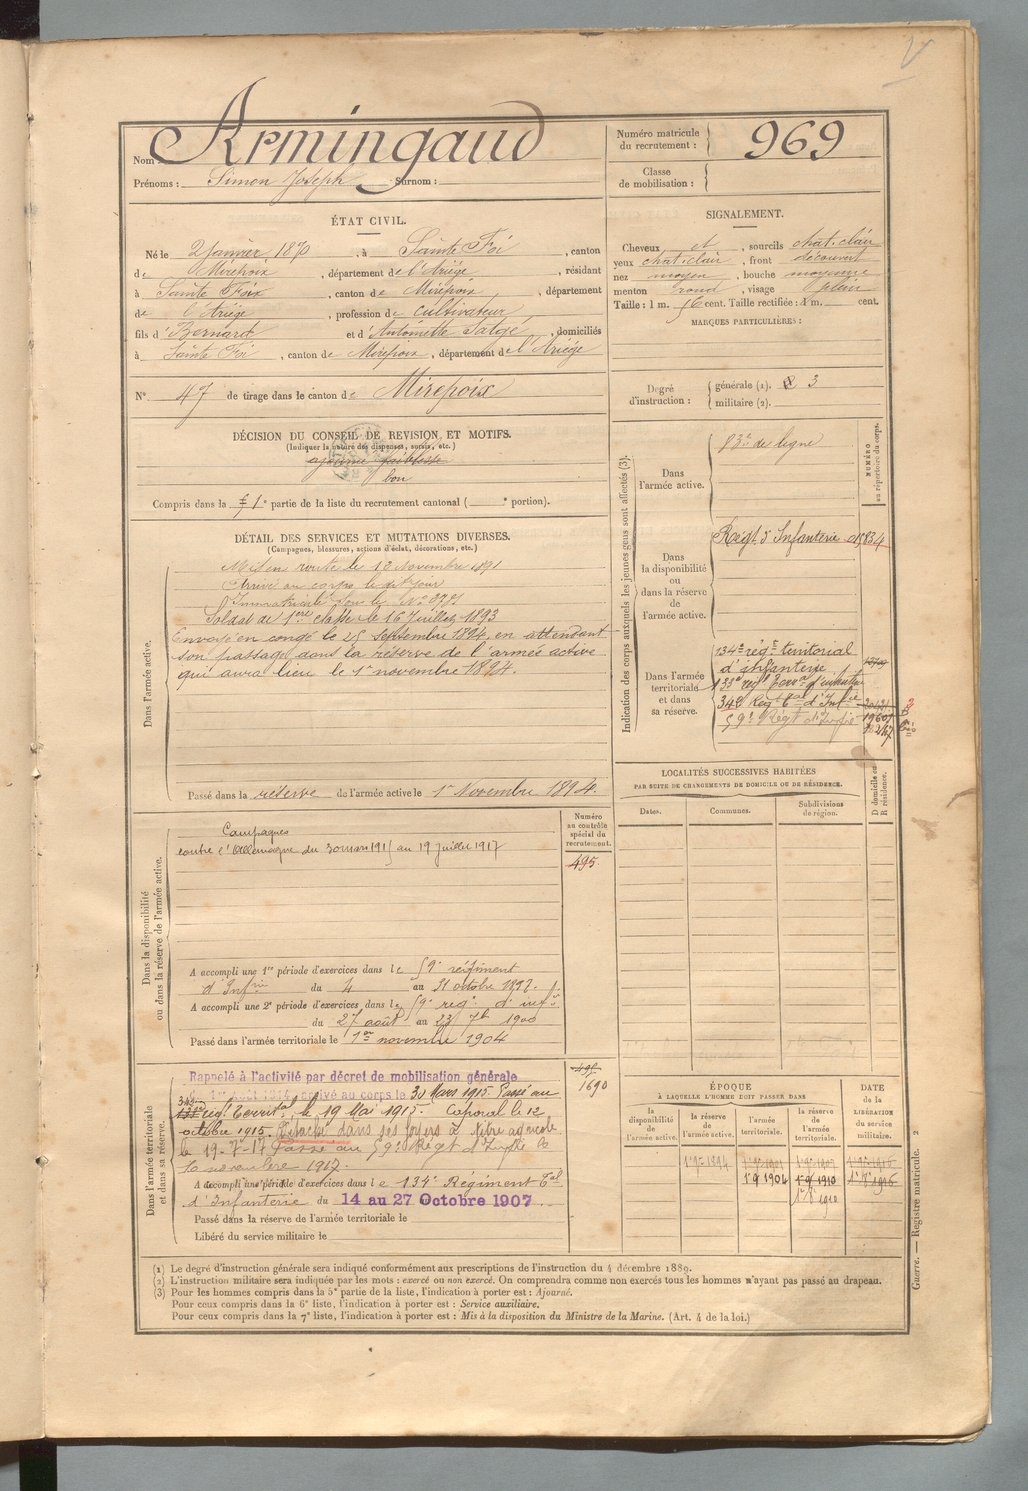 Nom : Armingaud
Prénoms : Simon Joseph Surnom :
Numéro matricule du recrutement : 969
Classe de mobilisation :
ÉTAT CIVIL.
Né le 2 Janvier 1870, à Sainte Foi, canton
de Mirepoix, département de l'Ariége, résidant
à Sainte Foix, canton de Mirepoix, département
de l'Ariége, profession de cultivateur
fils de Bernard et d'Antoinette Satgé, domiciliés
à Sainte Foi, canton de Mirepoix, département de l'Ariége
N° 47 de tirage dans le canton de Mirepoix
SIGNALEMENT.
Cheveux et, sourcils chat. clair
yeux chat. clair, front découvert
nez moyen, bouche moyenne
menton rond, visage plein
Taille : 1 m. 56 cent. Taille rectifiée : 1 m. cent.
MARQUES PARTICULIÈRES :
Degré d'instruction : générale (1). 3
militaire (2).
DÉCISION DU CONSEIL DE REVISION ET MOTIFS.
(Indiquer la nature des dispenses, sursis, etc.)
ajourné faiblesse
bon
Compris dans la 1e partie de la liste du recrutement cantonal ( e portion).
DÉTAIL DES SERVICES ET MUTATIONS DIVERSES.
(Campagnes, blessures, actions d'éclat, décorations, etc.)
Dans l'armée active.
Mis en route le 12 Novembre 1891
Arrivé au corps le dit jour
Immatriculé sous le N°
Soldat de 1ère classe le 16 Juillet 1893
Envoyé en congé le 25 Septembre 1894, en attendant
son passage dans la réserve de l'armée active
qui aura lieu le 1er novembre 1894.
Passé dans la réserve de l'armée active le 1er Novembre 1894.
Indication des corps auxquels les jeunes gens sont affectés (3).
NUMÉRO au répertoire du corps.
Dans l'armée active. 83e de ligne
Dans la disponibilité ou dans la réserve de l'armée active. Régt d'Infanterie
Dans l'armée territoriale et dans sa réserve.
134e régt territorial
d'infanterie
133e régt terral d'infanterie
34e Régt tal d'Infie
59e Régt d'Infie
LOCALITÉS SUCCESSIVES HABITÉES
PAR SUITE DE CHANGEMENTS DE DOMICILE OU DE RÉSIDENCE.
Dates. Communes. Subdivisions de région. D domicile ou R résidence.
Dans la disponibilité ou dans la réserve de l'armée active.
Campagnes
contre l'Allemagne du 30 mars 1915 au 19 juillet 1917
Numéro au contrôle spécial du recrutement.
495.
A accompli une 1re période d'exercices dans le 59e régiment
d'Infrie du 4 au 31 octobre 1897.
A accompli une 2e période d'exercices dans le 59e régt d'infie
du 27 août au 23 7bre 1900
Passé dans l'armée territoriale le 1er novembre 1904
Dans l'armée territoriale et dans sa réserve.
Rappelé à l'activité par décret de mobilisation générale
1er Août 1914, arrivé au corps le 30 Mars 1915. Passé au
régt territal, le 19 Mai 1915. Caporal le 12
octobre 1915. Détaché dans ses foyers à titre agricole
le 19-7-17 Passé au 59e Régt d'Infie le
10 novembre 1917.
1690
A accompli une période d'exercices dans le 134e Régiment tal
d'Infanterie du 14 au 27 Octobre 1907
Passé dans la réserve de l'armée territoriale le
Libéré du service militaire le
ÉPOQUE
À LAQUELLE L'HOMME DOIT PASSER DANS
la disponibilité de l'armée active. la réserve de l'armée active. l'armée territoriale. la réserve de l'armée territoriale.
DATE de la LIBÉRATION du service militaire.
1-9-1894 1-9-1901 1-9-1907 1-9-1916
1-9 1904 1-9 1910
(1) Le degré d'instruction générale sera indiqué conformément aux prescriptions de l'instruction du 4 décembre 1889.
(2) L'instruction militaire sera indiquée par les mots : exercé ou non exercé. On comprendra comme non exercés tous les hommes n'ayant pas passé au drapeau.
(3) Pour les hommes compris dans la 5e partie de la liste, l'indication à porter est : Ajourné.
Pour ceux compris dans la 6e liste, l'indication à porter est : Service auxiliaire.
Pour ceux compris dans la 7e liste, l'indication à porter est : Mis à la disposition du Ministre de la Marine. (Art. 4 de la loi.)
Guerre. — Registre matricule. 2